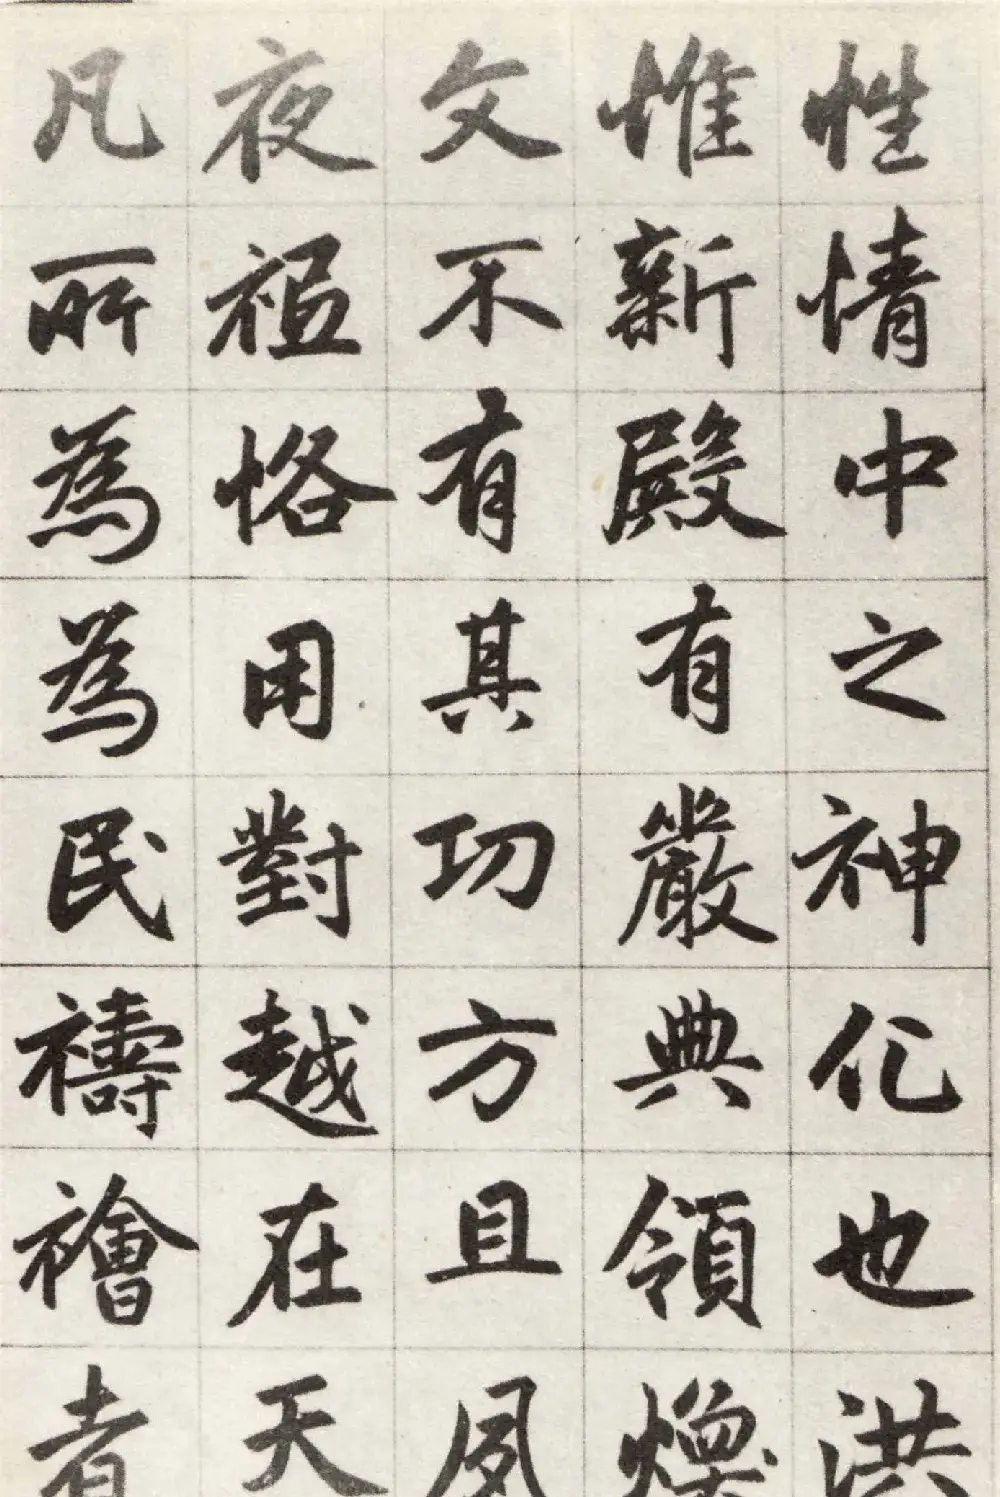 性情中之神化也洪
惟新殿有嚴典領煥
文不有其功方且夙
夜祗恪用對越在天
凡所為為民禱禬者